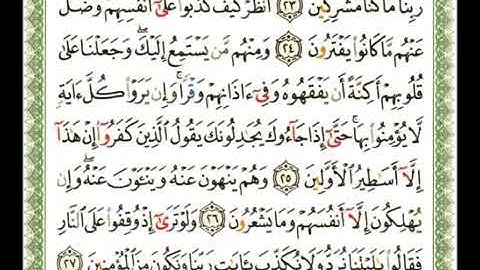 رَبِّنَا مَا كُنَّا مُشْرِكِينَ ٢٣ ٱنظُرْ كَيْفَ كَذَبُوا۟ عَلَىٰٓ أَنفُسِهِمْ وَضَلَّ
عَنْهُم مَّا كَانُوا۟ يَفْتَرُونَ ٢٤ وَمِنْهُم مَّن يَسْتَمِعُ إِلَيْكَ ۖ وَجَعَلْنَا عَلَىٰ
قُلُوبِهِمْ أَكِنَّةً أَن يَفْقَهُوهُ وَفِىٓ ءَاذَانِهِمْ وَقْرًا ۚ وَإِن يَرَوْا۟ كُلَّ ءَايَةٍ
لَّا يُؤْمِنُوا۟ بِهَا ۚ حَتَّىٰٓ إِذَا جَآءُوكَ يُجَٰدِلُونَكَ يَقُولُ ٱلَّذِينَ كَفَرُوٓا۟ إِنْ هَٰذَآ
إِلَّآ أَسَٰطِيرُ ٱلْأَوَّلِينَ ٢٥ وَهُمْ يَنْهَوْنَ عَنْهُ وَيَنْـَٔوْنَ عَنْهُ ۖ وَإِن
يُهْلِكُونَ إِلَّآ أَنفُسَهُمْ وَمَا يَشْعُرُونَ ٢٦ وَلَوْ تَرَىٰٓ إِذْ وُقِفُوا۟ عَلَى ٱلنَّارِ
فَقَالُوا۟ يَٰلَيْتَنَا نُرَدُّ وَلَا نُكَذِّبَ بِـَٔايَٰتِ رَبِّنَا وَنَكُونَ مِنَ ٱلْمُؤْمِنِينَ ٢٧